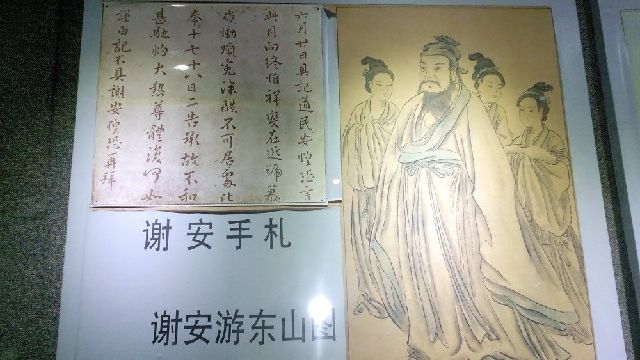 六月廿日具記道民安惶恐言
此月向終惟祥變在近號慕
崩慟煩冤深酷不可居處比
奉十七十八日二告承故不和
甚馳灼大熱尊體復何如
謹白記不具謝安惶恐再拜
谢安手札
谢安游东山图